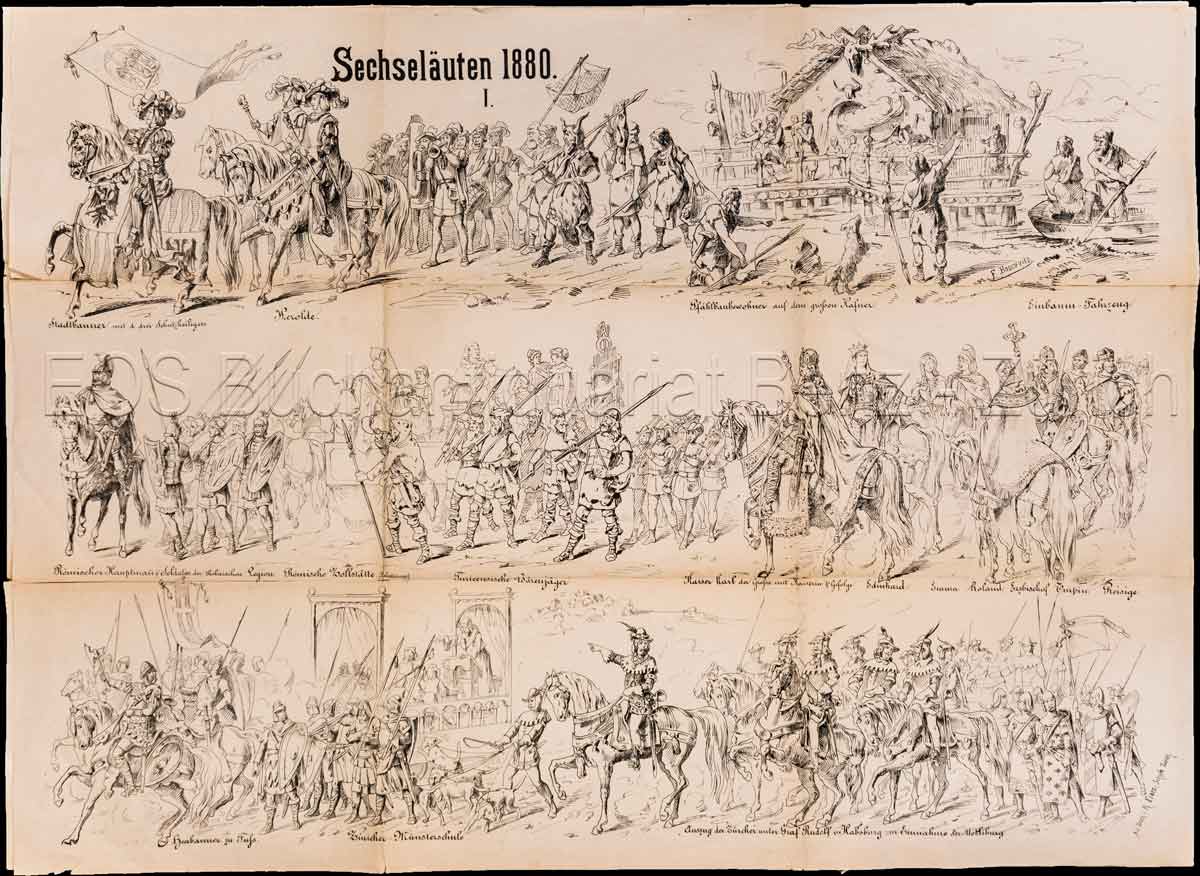 Sechseläuten 1880.
I.
F. Boscovits
Stadtbanner mit d. drei Schutzheiligen
Herolde.
Pfahlbaubewohner auf dem grossen Hafner
Einbaum-Fahrzeug.
EOS Buchantiquariat Benz, Zürich
Römischer Hauptmann & Soldaten der Legion
Römische Zollstätte
Turicensische Bärenjäger
Kaiser Karl der Grosse mit Kaiserin & Gefolge
Eginhard
Emma Roland Erzbischof Turpin Reisige
Heerbanner zu Fuss.
Zürcher Münsterschule
Auszug der Zürcher unter Graf Rudolf v. Habsburg zur Einnahme der Uetliburg